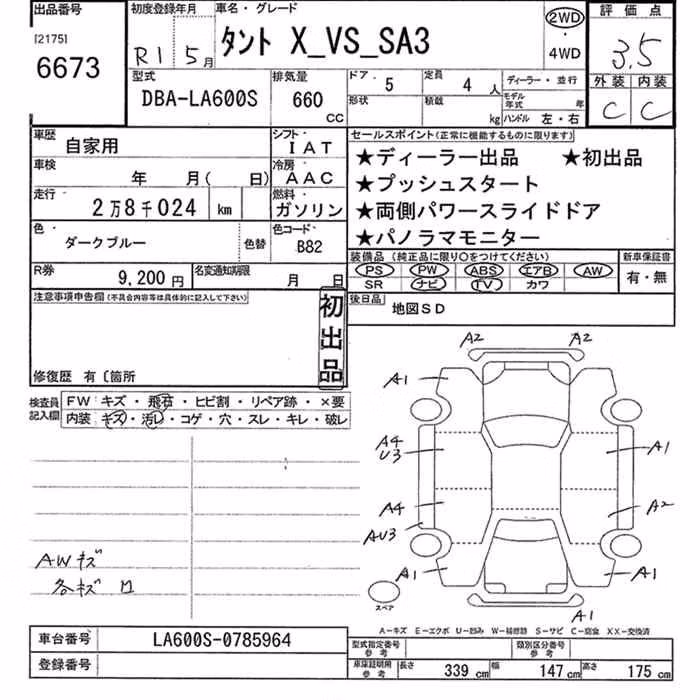 出品番号
[2175]
6673
初度登録年月
R1 5月
車名・グレード
タント X_VS_SA3
2WD
・
4WD
評価点
3.5
外装 内装
C C
型式
DBA-LA600S
排気量
660
CC
ドア・ 5
定員 4 人
ディーラー・並行
形状
積載 kg
モデル年式 年
ハンドル 左・右
車歴 自家用
シフト・ IAT
車検 年 月( 日)
冷房 AAC
走行・ 2万8千024 km
燃料・ ガソリン
色・ ダークブルー
色替
色コード・ B82
R券 9,200円
名変通知期限 月 日
セールスポイント(正常に機能するものに限ります)
★ディーラー出品 ★初出品
★プッシュスタート
★両側パワースライドドア
★パノラマモニター
装備品(純正品に限り○をつけてください)
PS PW ABS エアB AW
SR ナビ TV カワ
新車保証書
有・無
後日品 地図SD
注意事項申告欄(不具合内容等は具体的に記入して下さい)
初出品
修復歴 有〔箇所
検査員記入欄
FW: キズ・飛石・ヒビ割・リペア跡・×要
内装: キズ・汚レ・コゲ・穴・スレ・キレ・破レ
AWキズ
各キズ
A2 A2
A1
A4
U3
A1
A4
A2
AU3
A1 A1
A1
スペア
A-キズ E-エクボ U-凹み W-補修跡 S-サビ C-腐食 XX-交換済
車台番号 LA600S-0785964
登録番号
型式指定番号 参考
類別区分番号 参考
車庫証明用 参考
長さ 339 cm 幅 147 cm 高さ 175 cm